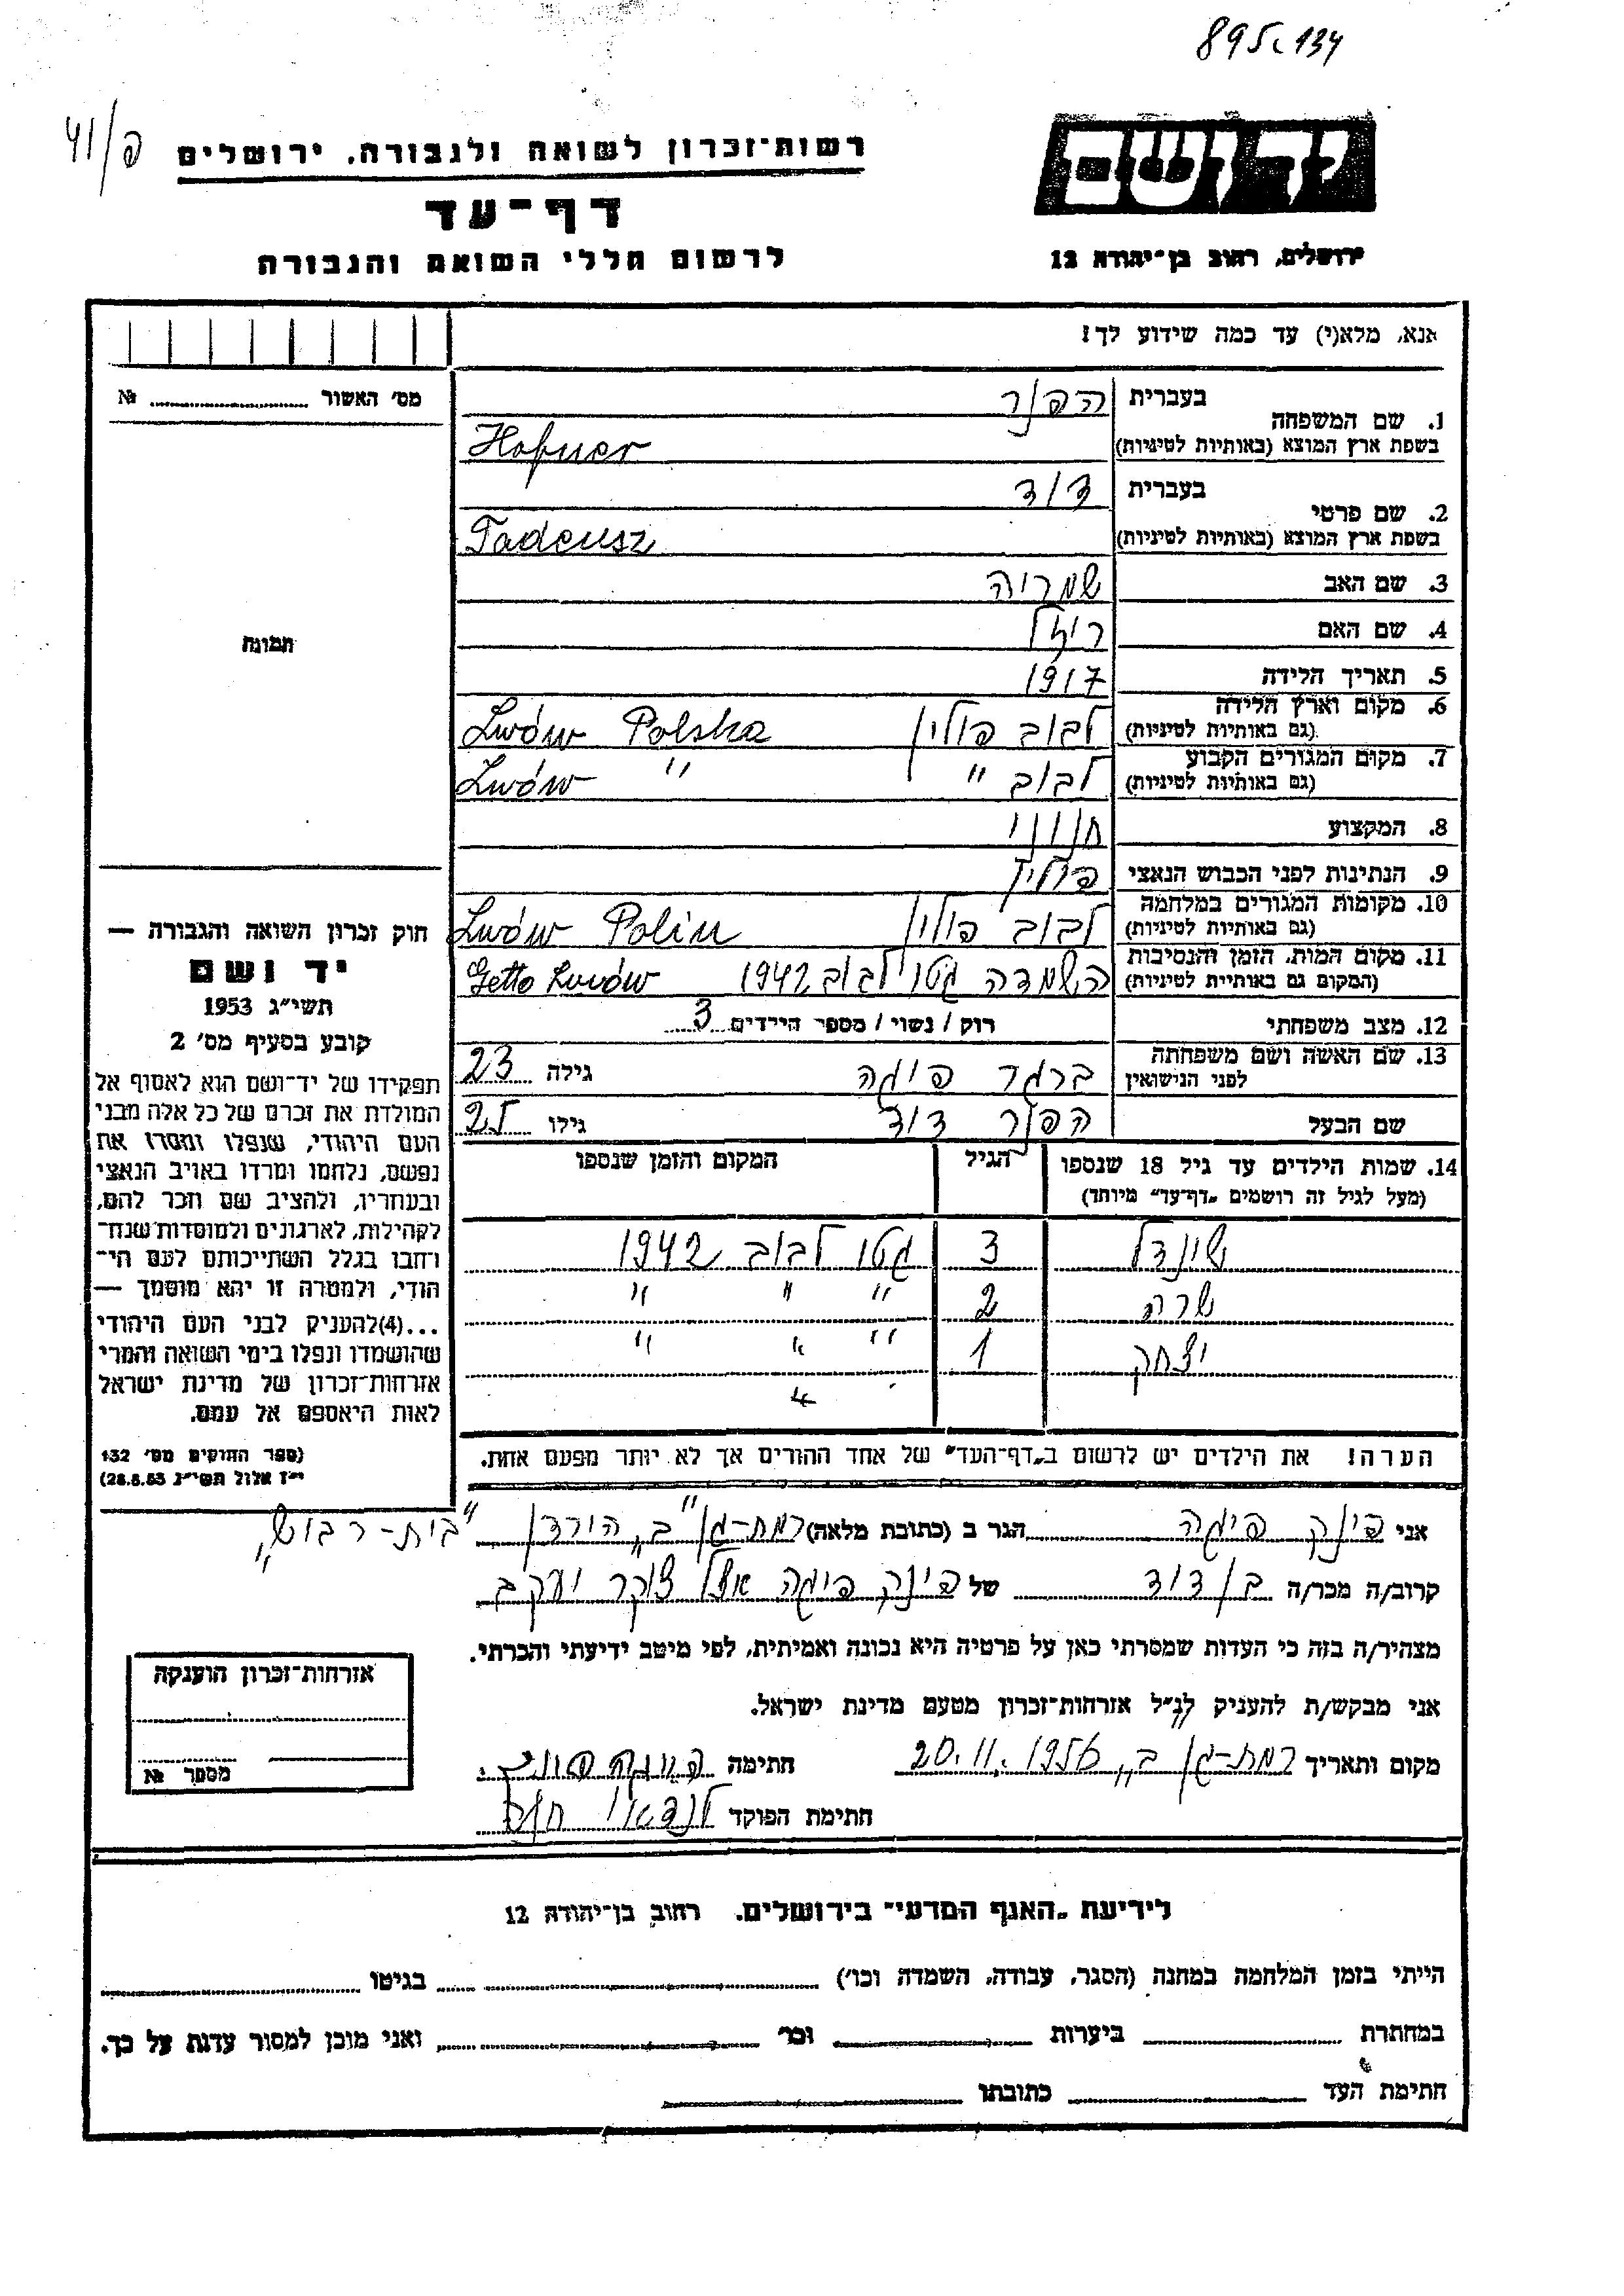 895.134
פ/41
יד ושם
רשות־זכרון לשואה ולגבורה. ירושלים
דף־עד
לרשום חללי השואה והגבורה
ירושלים, רחוב בן־יהודה 12
אנא, מלא(י) עד כמה שידוע לך!
מס׳ האשור №
תמונה
1. שם המשפחה
בעברית הפנר
בשפת ארץ המוצא (באותיות לטיניות) Hofner
2. שם פרטי
בעברית דוד
בשפת ארץ המוצא (באותיות לטיניות) Tadeusz
3. שם האב שמריה
4. שם האם רייזל
5. תאריך הלידה 1917
6. מקום וארץ הלידה (גם באותיות לטיניות) לבוב פולין Lwów Polska
7. מקום המגורים הקבוע (גם באותיות לטיניות) לבוב " Lwów "
8. המקצוע חנוני
9. הנתינות לפני הכבוש הנאצי פולין
10. מקומות המגורים במלחמה (גם באותיות לטיניות) לבוב פולין Lwów Polin
11. מקום המות, הזמן והנסיבות (המקום גם באותיות לטיניות) השמדה גטו לבוב 1942 Getto Lwów
12. מצב משפחתי רוק / נשוי / מספר הילדים 3
13. שם האשה ושם משפחתה לפני הנישואין ברגר פיגה גילה 23
שם הבעל הפנר דוד גילו 25
14. שמות הילדים עד גיל 18 שנספו הגיל המקום והזמן שנספו
(מעל לגיל זה רושמים „דף־עד" מיוחד)
שינדל 3 גטו לבוב 1942
שרה 2 " " "
יצחק 1 " " "
4
הערה! את הילדים יש לרשום ב„דף־העד" של אחד ההורים אך לא יותר מפעם אחת.
חוק זכרון השואה והגבורה —
יד ושם
תשי״ג 1953
קובע בסעיף מס׳ 2
תפקידו של יד־ושם הוא לאסוף אל
המולדת את זכרם של כל אלה מבני
העם היהודי, שנפלו ומסרו את
נפשם, נלחמו ומרדו באויב הנאצי
ובעוזריו, ולהציב שם וזכר להם,
לקהילות, לארגונים ולמוסדות שנח־
רחבו בגלל השתייכותם לעם הי־
הודי, ולמטרה זו יהא מוסמך —
...(4)להעניק לבני העם היהודי
שהושמדו ונפלו בימי השואה והמרי
אזרחות־זכרון של מדינת ישראל
לאות היאספם אל עמם.
(ספר החוקים מס׳ 132
י״ז אלול תשי״ג 28.8.53)
אני פינק פיגה הגר ב (כתובת מלאה) רמת-גן ב, הירדן "בית-רבוש"
קרוב/ה מכר/ה בן דוד של פינק פיגה אצל צוקר יעקב
מצהיר/ה בזה כי העדות שמסרתי כאן על פרטיה היא נכונה ואמיתית, לפי מיטב ידיעתי והכרתי.
אני מבקש/ת להעניק לנ״ל אזרחות־זכרון מטעם מדינת ישראל.
מקום ותאריך רמת-גן ב, 20.11.1956 חתימה
חתימת הפוקד
אזרחות־זכרון הוענקה
מספר №
לידיעת „האגף המדעי" בירושלים. רחוב בן־יהודה 12
הייתי בזמן המלחמה במחנה (הסגר, עבודה, השמדה וכו׳) בגיטו
במחתרת ביערות וכו׳ ואני מוכן למסור עדות על כך.
חתימת העד כתובתו